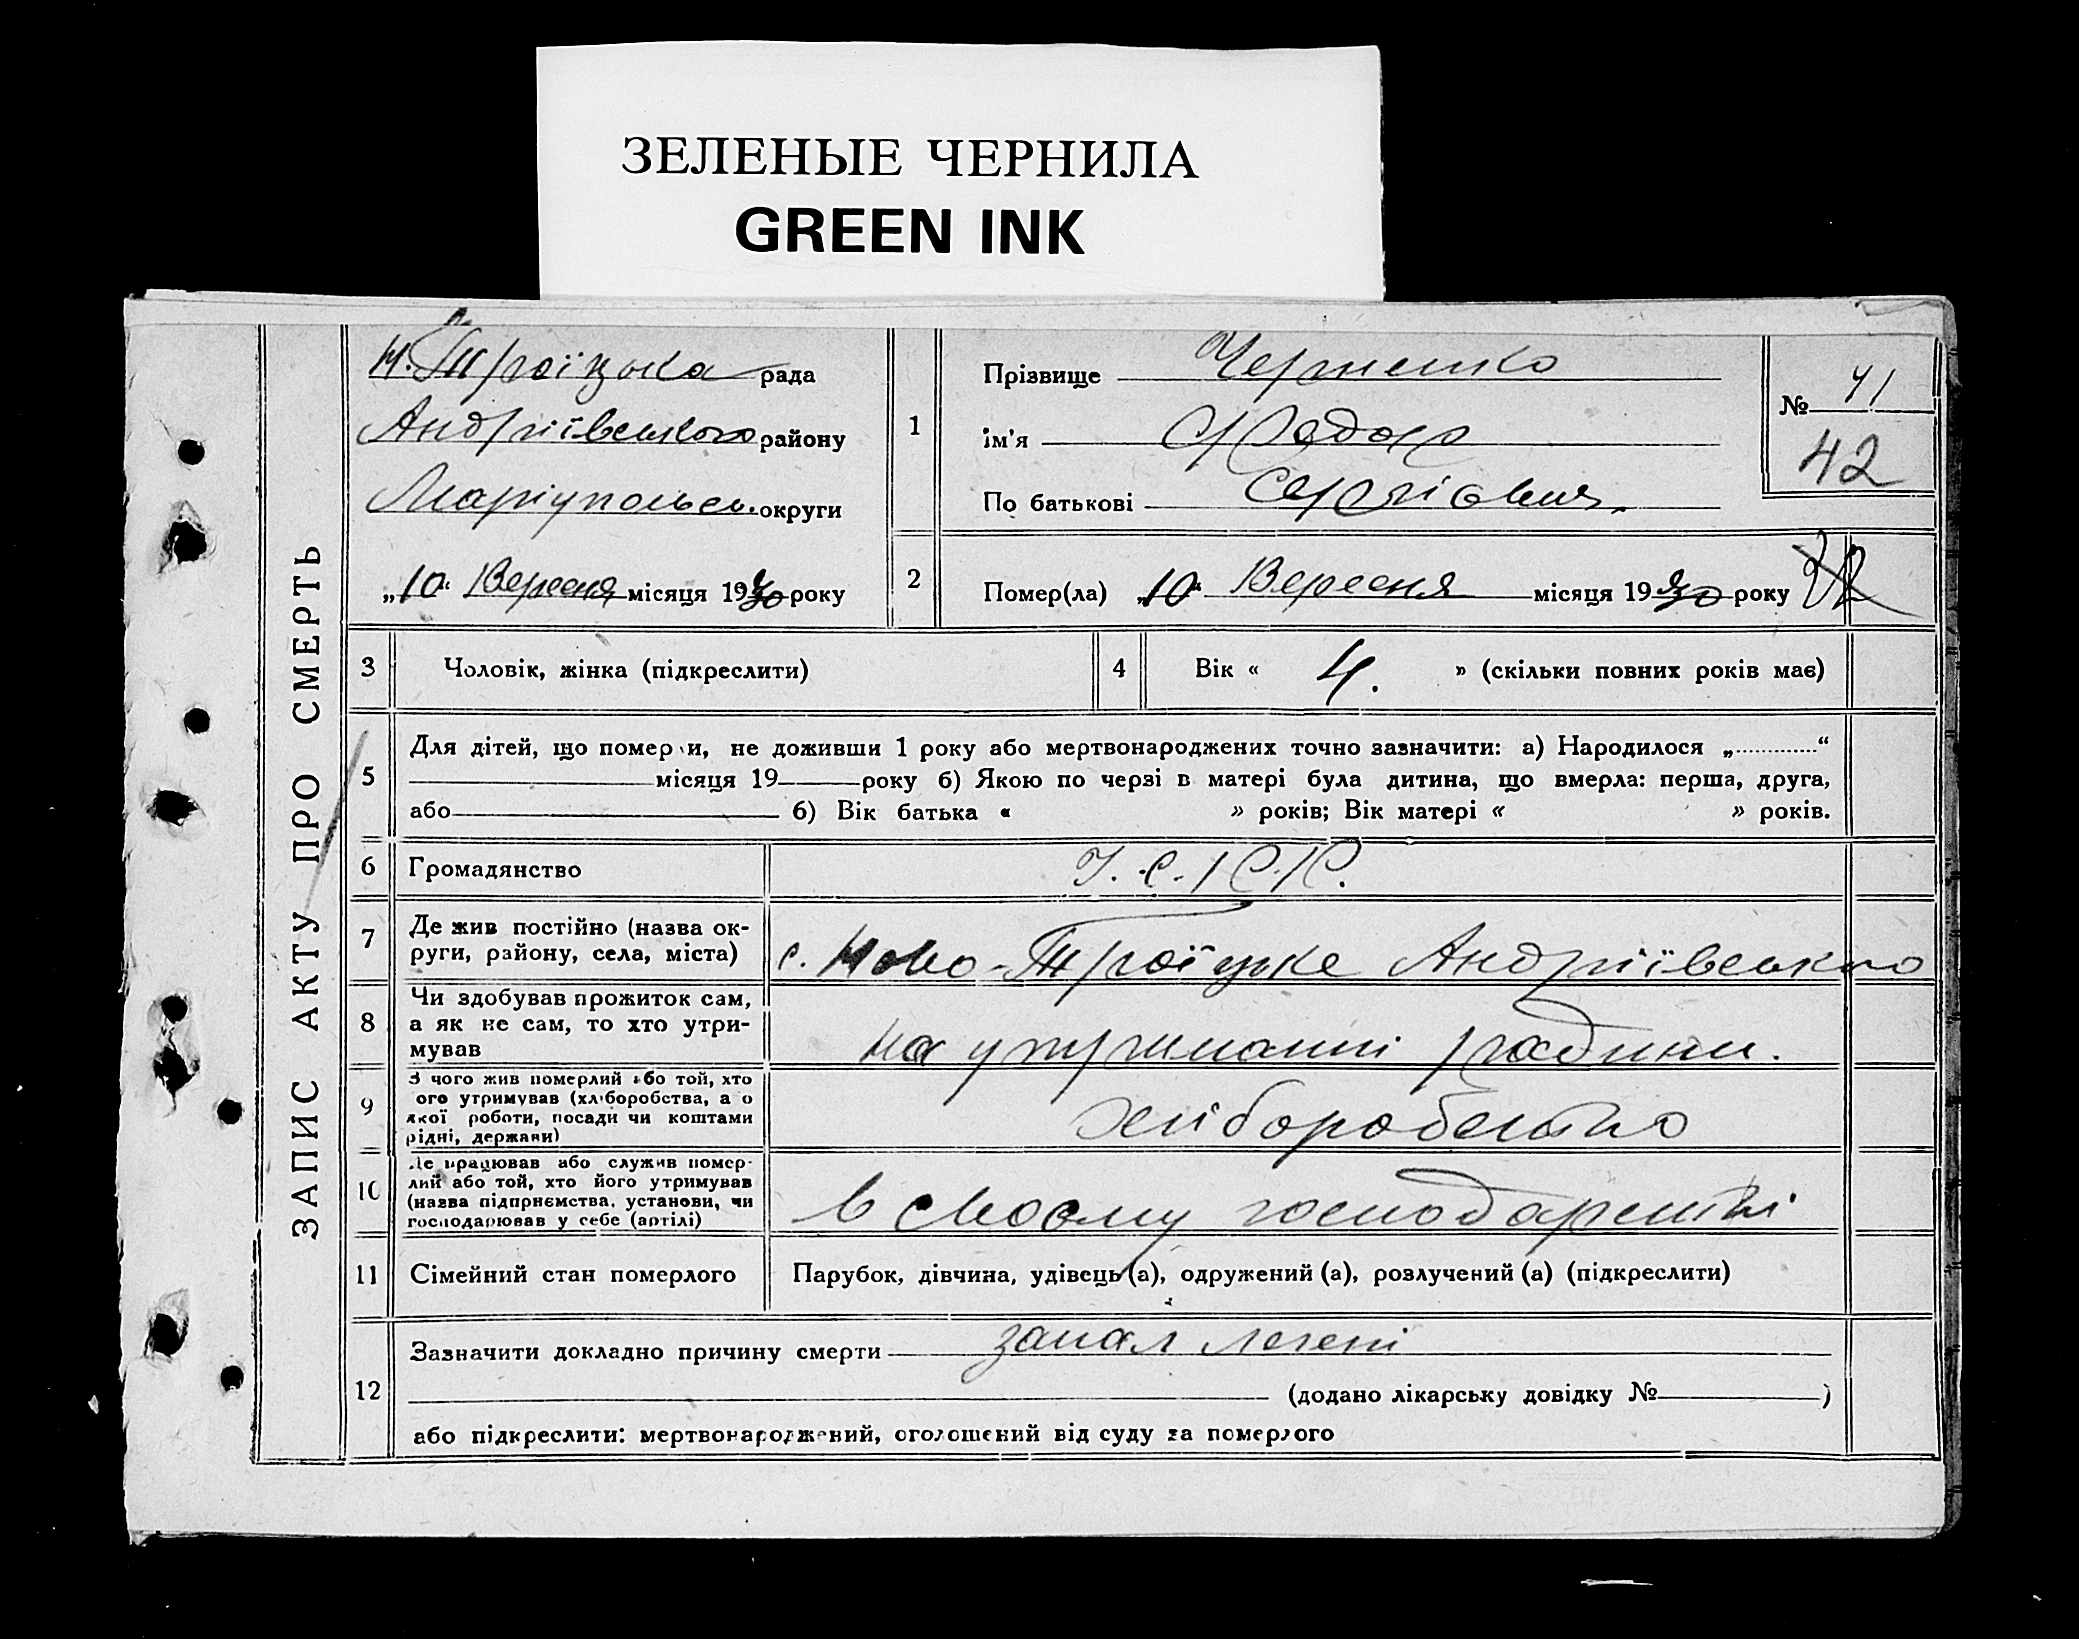 ЗЕЛЕНЫЕ ЧЕРНИЛА
GREEN INK
ЗАПИС АКТУ ПРО СМЕРТЬ
Н. Троїцька рада
Андріївського району
Маріупольск. округи
„10“ Вересня місяця 1930 року
1
Прізвище Черненко
ім'я Федор
По батькові
№ 41
42
2
Помер(ла) „10“ Вересня місяця 1930 року
3 Чоловік, жінка (підкреслити)
4 Вік « 4. » (скільки повних років має)
5
Для дітей, що померли, не доживши 1 року або мертвонароджених точно зазначити: а) Народилося „ “
місяця 19 року б) Якою по черзі в матері була дитина, що вмерла: перша, друга,
або б) Вік батька « » років; Вік матері « » років.
6 Громадянство У.С.Р.Р.
7 Де жив постійно (назва ок-
руги, району, села, міста) с. Ново-Троїцьке Андріївсько
8 Чи здобував прожиток сам,
а як не сам, то хто утри-
мував на утриманні родини.
9 З чого жив померлий або той, хто
ого утримував (хліборобства, а о
якої роботи, посади чи коштами
рідні, держави) хліборобство
10 Де працював або служив помер-
лий або той, хто його утримував
(назва підприємства, установи, чи
господарював у себе (артілі) в своєму господарстві
11 Сімейний стан померлого Парубок, дівчина, удівець (а), одружений (а), розлучений (а) (підкреслити)
12
Зазначити докладно причину смерти запал легені
(додано лікарську довідку № )
або підкреслити: мертвонароджений, оголошений від суду за померлого